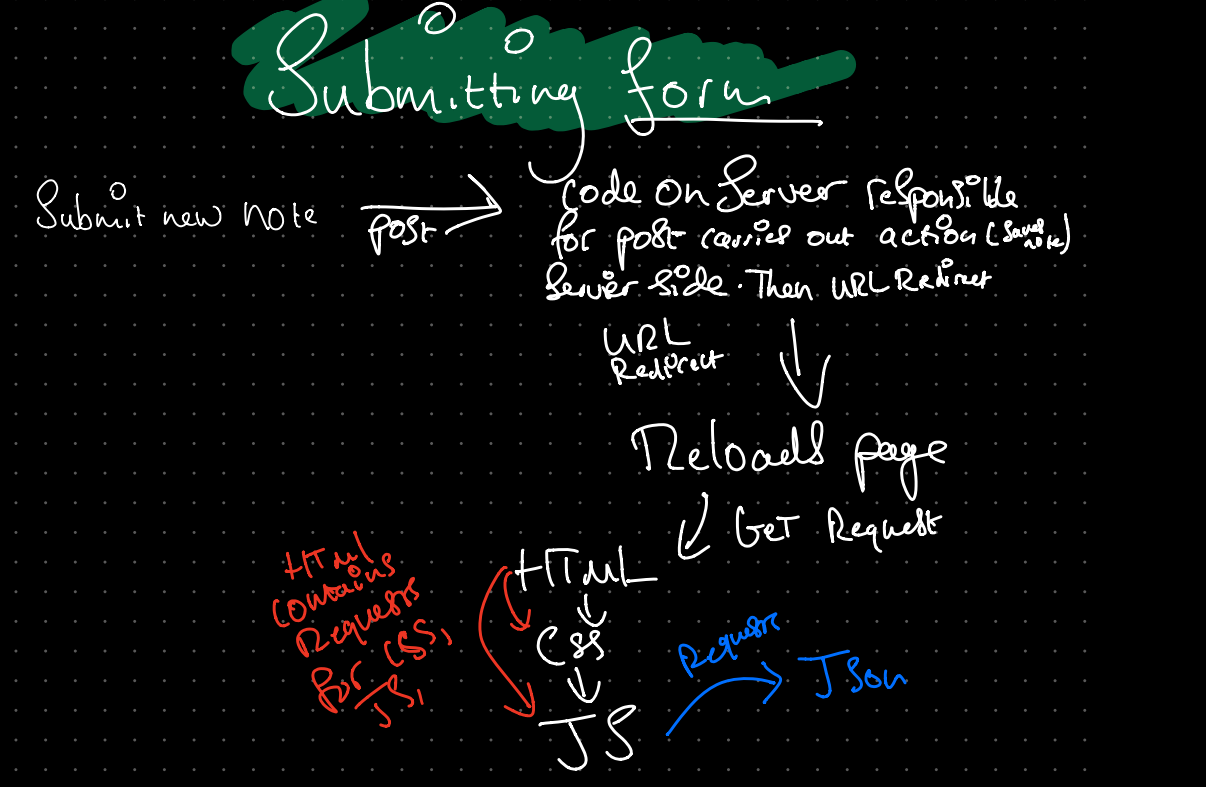 Submitting form
Submit new note
post
Code on Server responsible
for post carries out action (saves note)
Server side. Then URL Redirect
URL
Redirect
Reloads page
GET Request
HTML
CSS
JS
HTML
contains
Requests
for CSS,
JS,
Requests
JSON